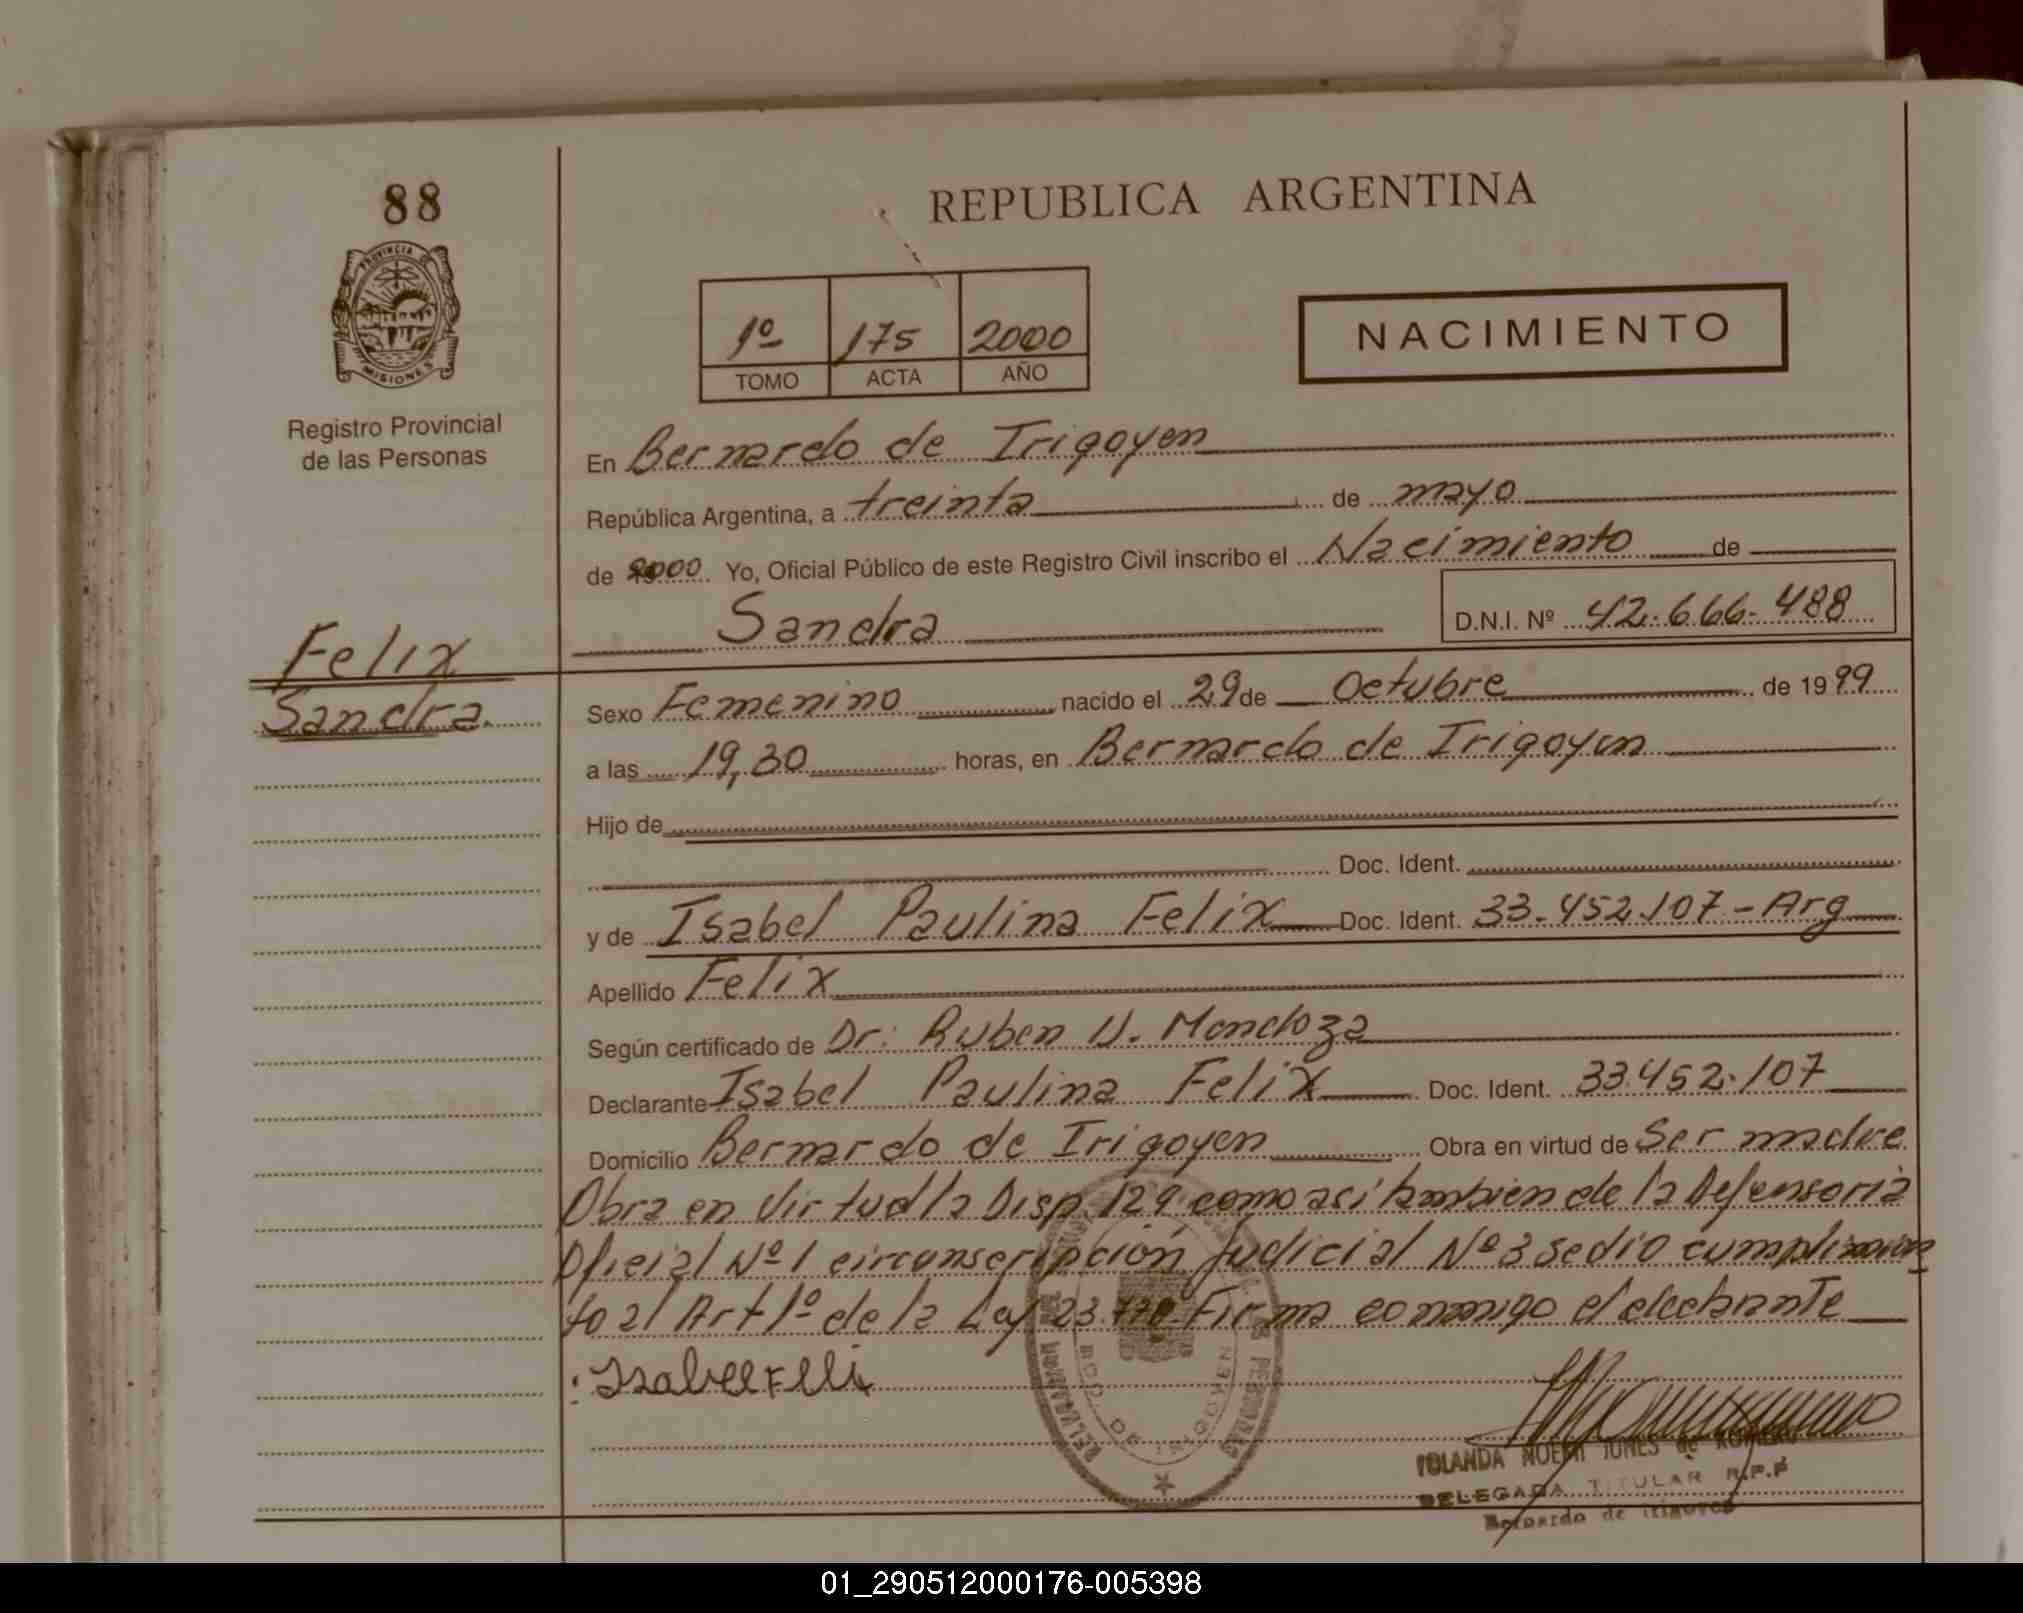 88
REPUBLICA ARGENTINA
PROVINCIA DE
MISIONES
Registro Provincial
de las Personas
1º 175 2000
TOMO ACTA AÑO
NACIMIENTO
En Bernardo de Irigoyen
República Argentina, a treinta de mayo
de 2000 Yo, Oficial Público de este Registro Civil inscribo el Nacimiento de
Sandra D.N.I. Nº 42.666.488
Felix
Sandra.
Sexo Femenino nacido el 29 de Octubre de 1999
a las 19,30 horas, en Bernardo de Irigoyen
Hijo de
Doc. Ident.
y de Isabel Paulina Felix Doc. Ident. 33.452.107 - Arg
Apellido Felix
Según certificado de Dr: Ruben U. Mendoza
Declarante Isabel Paulina Felix Doc. Ident. 33.452.107
Domicilio Bernardo de Irigoyen Obra en virtud de Ser madre
Obra en virtud la Disp. 129 como asi tambien de la Defensoria
Oficial Nº 1 circunscripción Judicial Nº 3 se dio cumplimien
to al Art 1º de la Ley 23.776. Firma conmigo el declarante
BDO. DE IRIGOYEN
YOLANDA NOEMI JONES de ROMERO
DELEGADA TITULAR R.P.P
Bernardo de Irigoyen
01_290512000176-005398